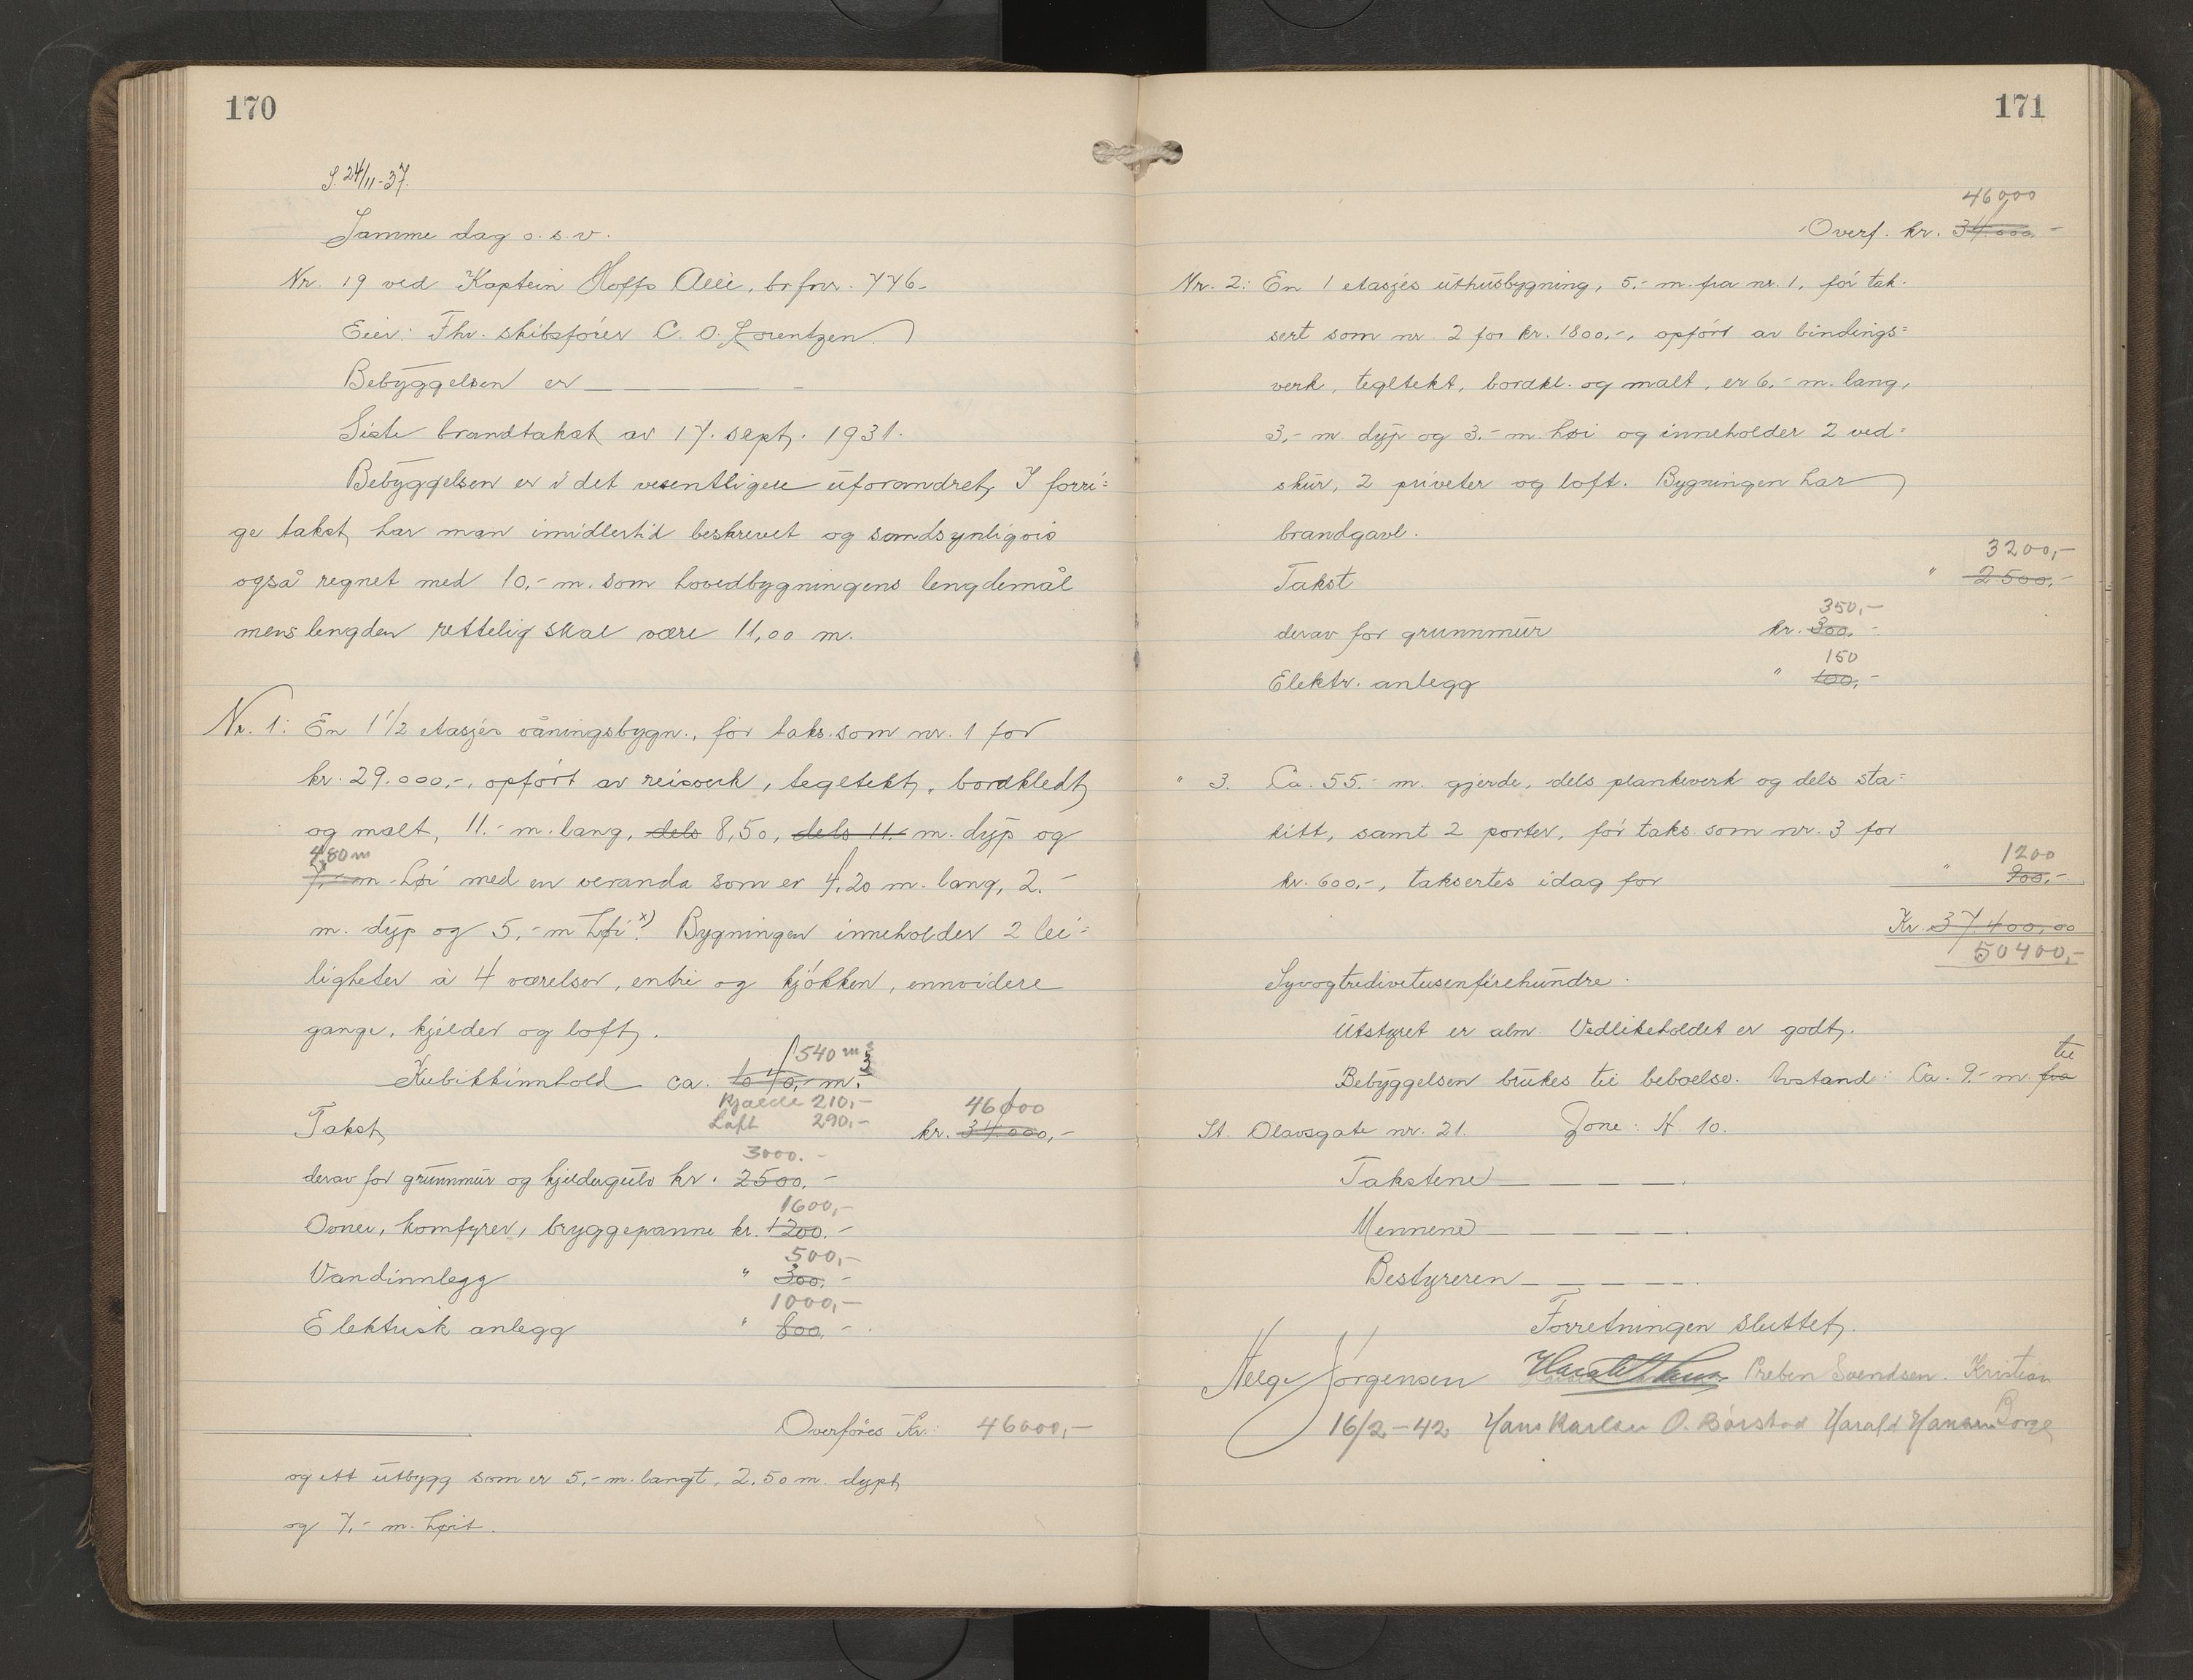 170
S. 24/11-37.
Samme dag o. s. v.
Nr. 19 ved Kaptein Hoffs Allé, br fnr. 776.
Eier: Fhv. skibsfører C. O. Lorentzen.
Bebyggelsen er — — — —
Siste brandtakst av 17. sept. 1931.
Bebyggelsen er i det vesentligste uforandret. I forri=
ge takst har man imidlertid beskrevet og sandsynligvis
også regnet med 10,- m. som hovedbygningens lengdemål
mens lengden rettelig skal være 11,00 m.
Nr. 1: En 1 1/2 etasjes våningsbygn., før taks. som nr. 1 for
kr. 29.000,-, opført av reisverk, tegltekt, bordkledt
og malt, 11.- m. lang, dels 8,50, dels 11.- m. dyp og
4,80 m
7,- m høi med en veranda som er 4,20 m. lang, 2.-
m. dyp og 5,- m høi x). Bygningen inneholder 2 lei=
ligheter à 4 værelser, entri og kjøkken, ennvidere
gange, kjelder og loft.
540 m3
Kubikkinnhold ca. m.3
Kjælle 210,-
Loft 290,- 46000
Takst kr. 34.000,-
3000.-
derav for grunnmur og kjeldergulv kr. 2500.-
1600,-
Ovner, komfyrer, bryggepanne kr. 1200.-
500,-
Vandinnlegg " 300.-
1000,-
Elektrisk anlegg " 800.-
Overføres Kr.: 46000,-
og ett utbygg som er 5,- m. langt, 2,50 m. dypt
og 7,- m. høit.
171
46000
Overf. kr. 34.000.-
Nr. 2: En 1 etasjes uthusbygning, 5,- m. fra nr. 1, før tak-
sert som nr. 2 for kr. 1800.-, opført av bindings=
verk, tegltekt, bordkl. og malt, er 6,- m. lang,
3,- m dyp og 3.- m. høi og inneholder 2 ved=
skur, 2 priveter og loft. Bygningen har
brandgavl.
3200,-
Takst " 2500.-
350,-
derav for grunnmur kr. 300.-
150
Elektr. anlegg " 100,-
" 3. Ca. 55.- m. gjerde, dels plankeverk og dels sta=
kitt, samt 2 porter, før taks. som nr. 3 for
1200
kr. 600.-, taksertes idag for " 900.-
Kr. 37.400,00
50400,-
Syvogtredivetusenfirehundre.
Utstyret er alm. Vedlikeholdet er godt.
til
Bebyggelsen brukes til beboelse. Avstand: Ca. 9.- m. fra
St. Olavsgate nr. 21. Zone: A 10.
Takstene — — — —.
Mennene — — — —.
Bestyreren — — — —.
Forretningen sluttet.
Helge Jørgensen Preben Svendsen. Kristian
16/2-42 Hans Karlsen O. Børstad Harald Hansen Borge